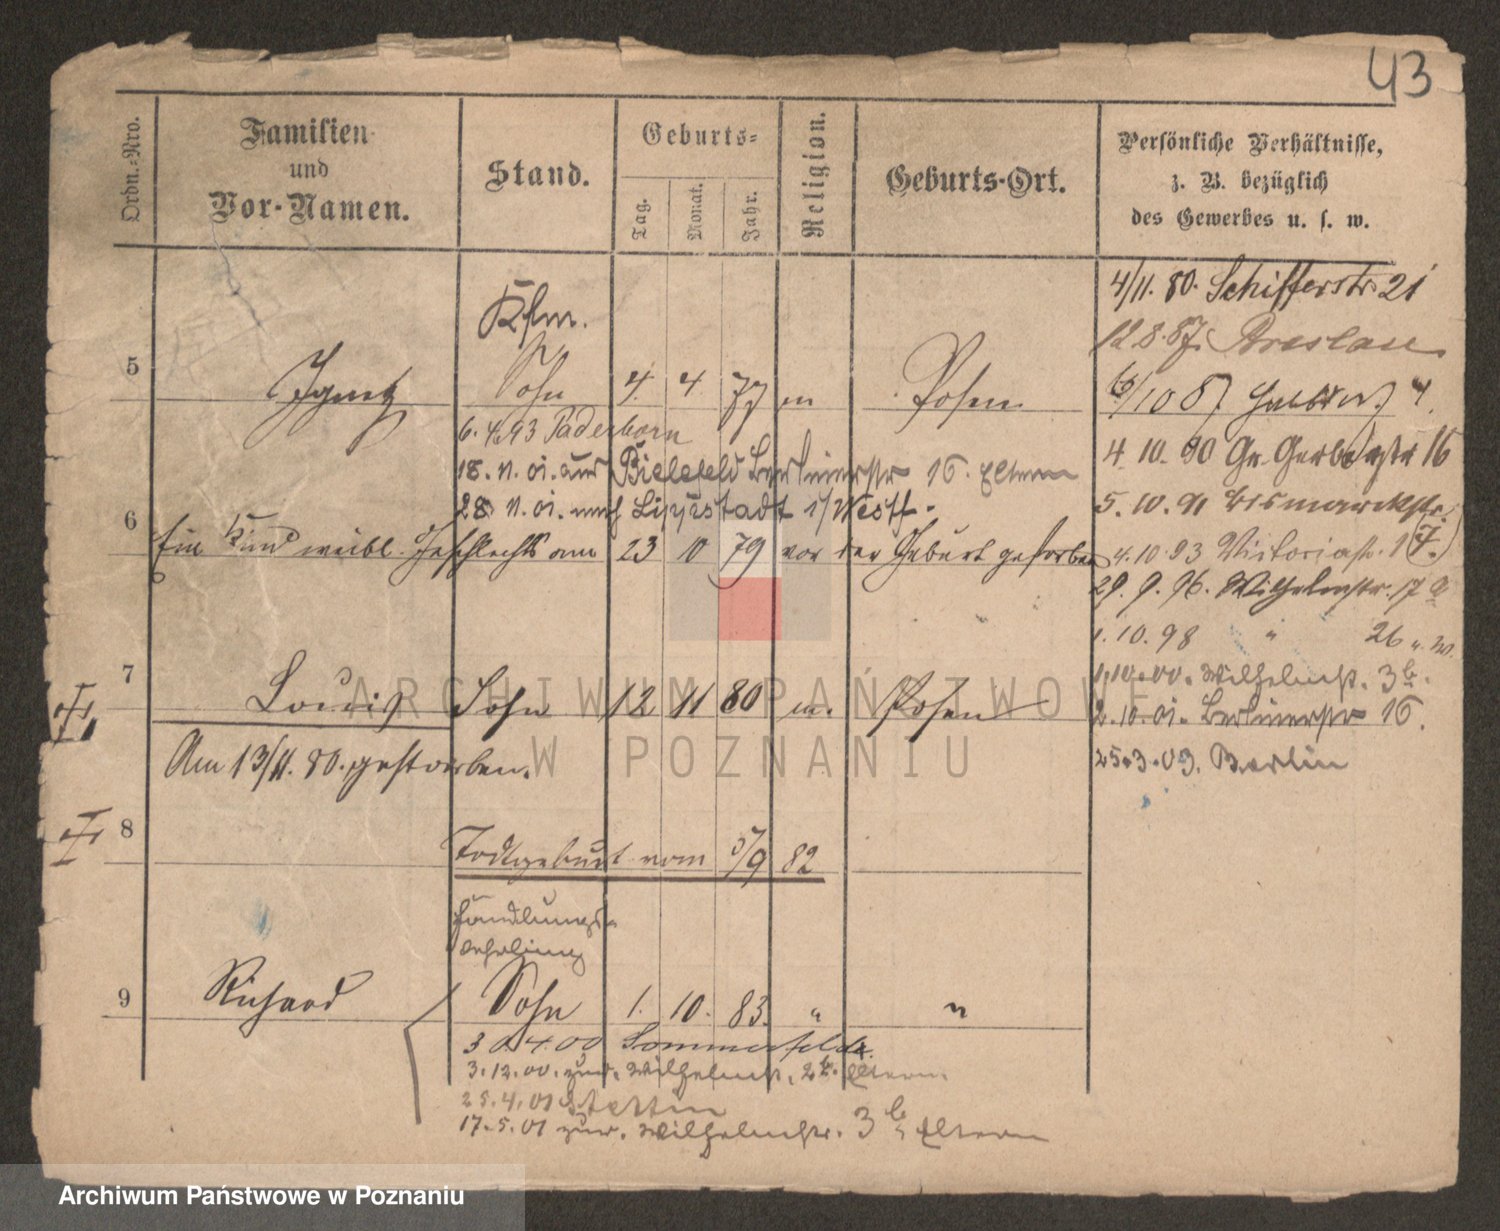 43
Ordn.-Nro.
Familien
und
Vor-Namen.
Stand.
Geburts-
Tag.
Monat.
Jahr.
Religion.
Geburts-Ort.
Persönliche Verhältnisse,
z. B. bezüglich
des Gewerbes u. s. w.
4/11. 80. Schifferstr 21
12 8. 87. Breslau
Kfm.
5 Ignatz Sohn 4. 4. 77 m Posen
/10 87 4.
6. 4. 93 Paderborn
4. 10. 90 Gr. Gerberstr 16
18. 11. 01. aus Bielefeld Berlinerstr 16. Eltern
5. 10. 91 Bismarckstr.
28. 11. 01. nach Lippstadt i/Westf.
6 Ein Kind weibl. Geschlechts am 23 10 79 vor der Geburt gestorben
4. 10. 93 Victoriastr. 17.
29. 9. 96. Wilhelmstr. 17
1. 10. 98 " 26
1.10.00. Wilhelmstr. 3b.
7 Louis Sohn 12 11 80 m. Posen
2. 10. 01. Berlinerstr 16.
Am 13/11. 80. gestorben.
25.3.03. Berlin
8 Todtgeburt vom 5/9 82
Handlungs-
Lehrling
9 Richard Sohn 1. 10. 83. " "
30.4.00 Sommerfeld
3.12.00. zur. Wilhelmstr. Eltern.
25.4.01 Stettin
17.5.01 zur. Wilhelmstr. 3b Eltern
ARCHIWUM PAŃSTWOWE
W POZNANIU
Archiwum Państwowe w Poznaniu